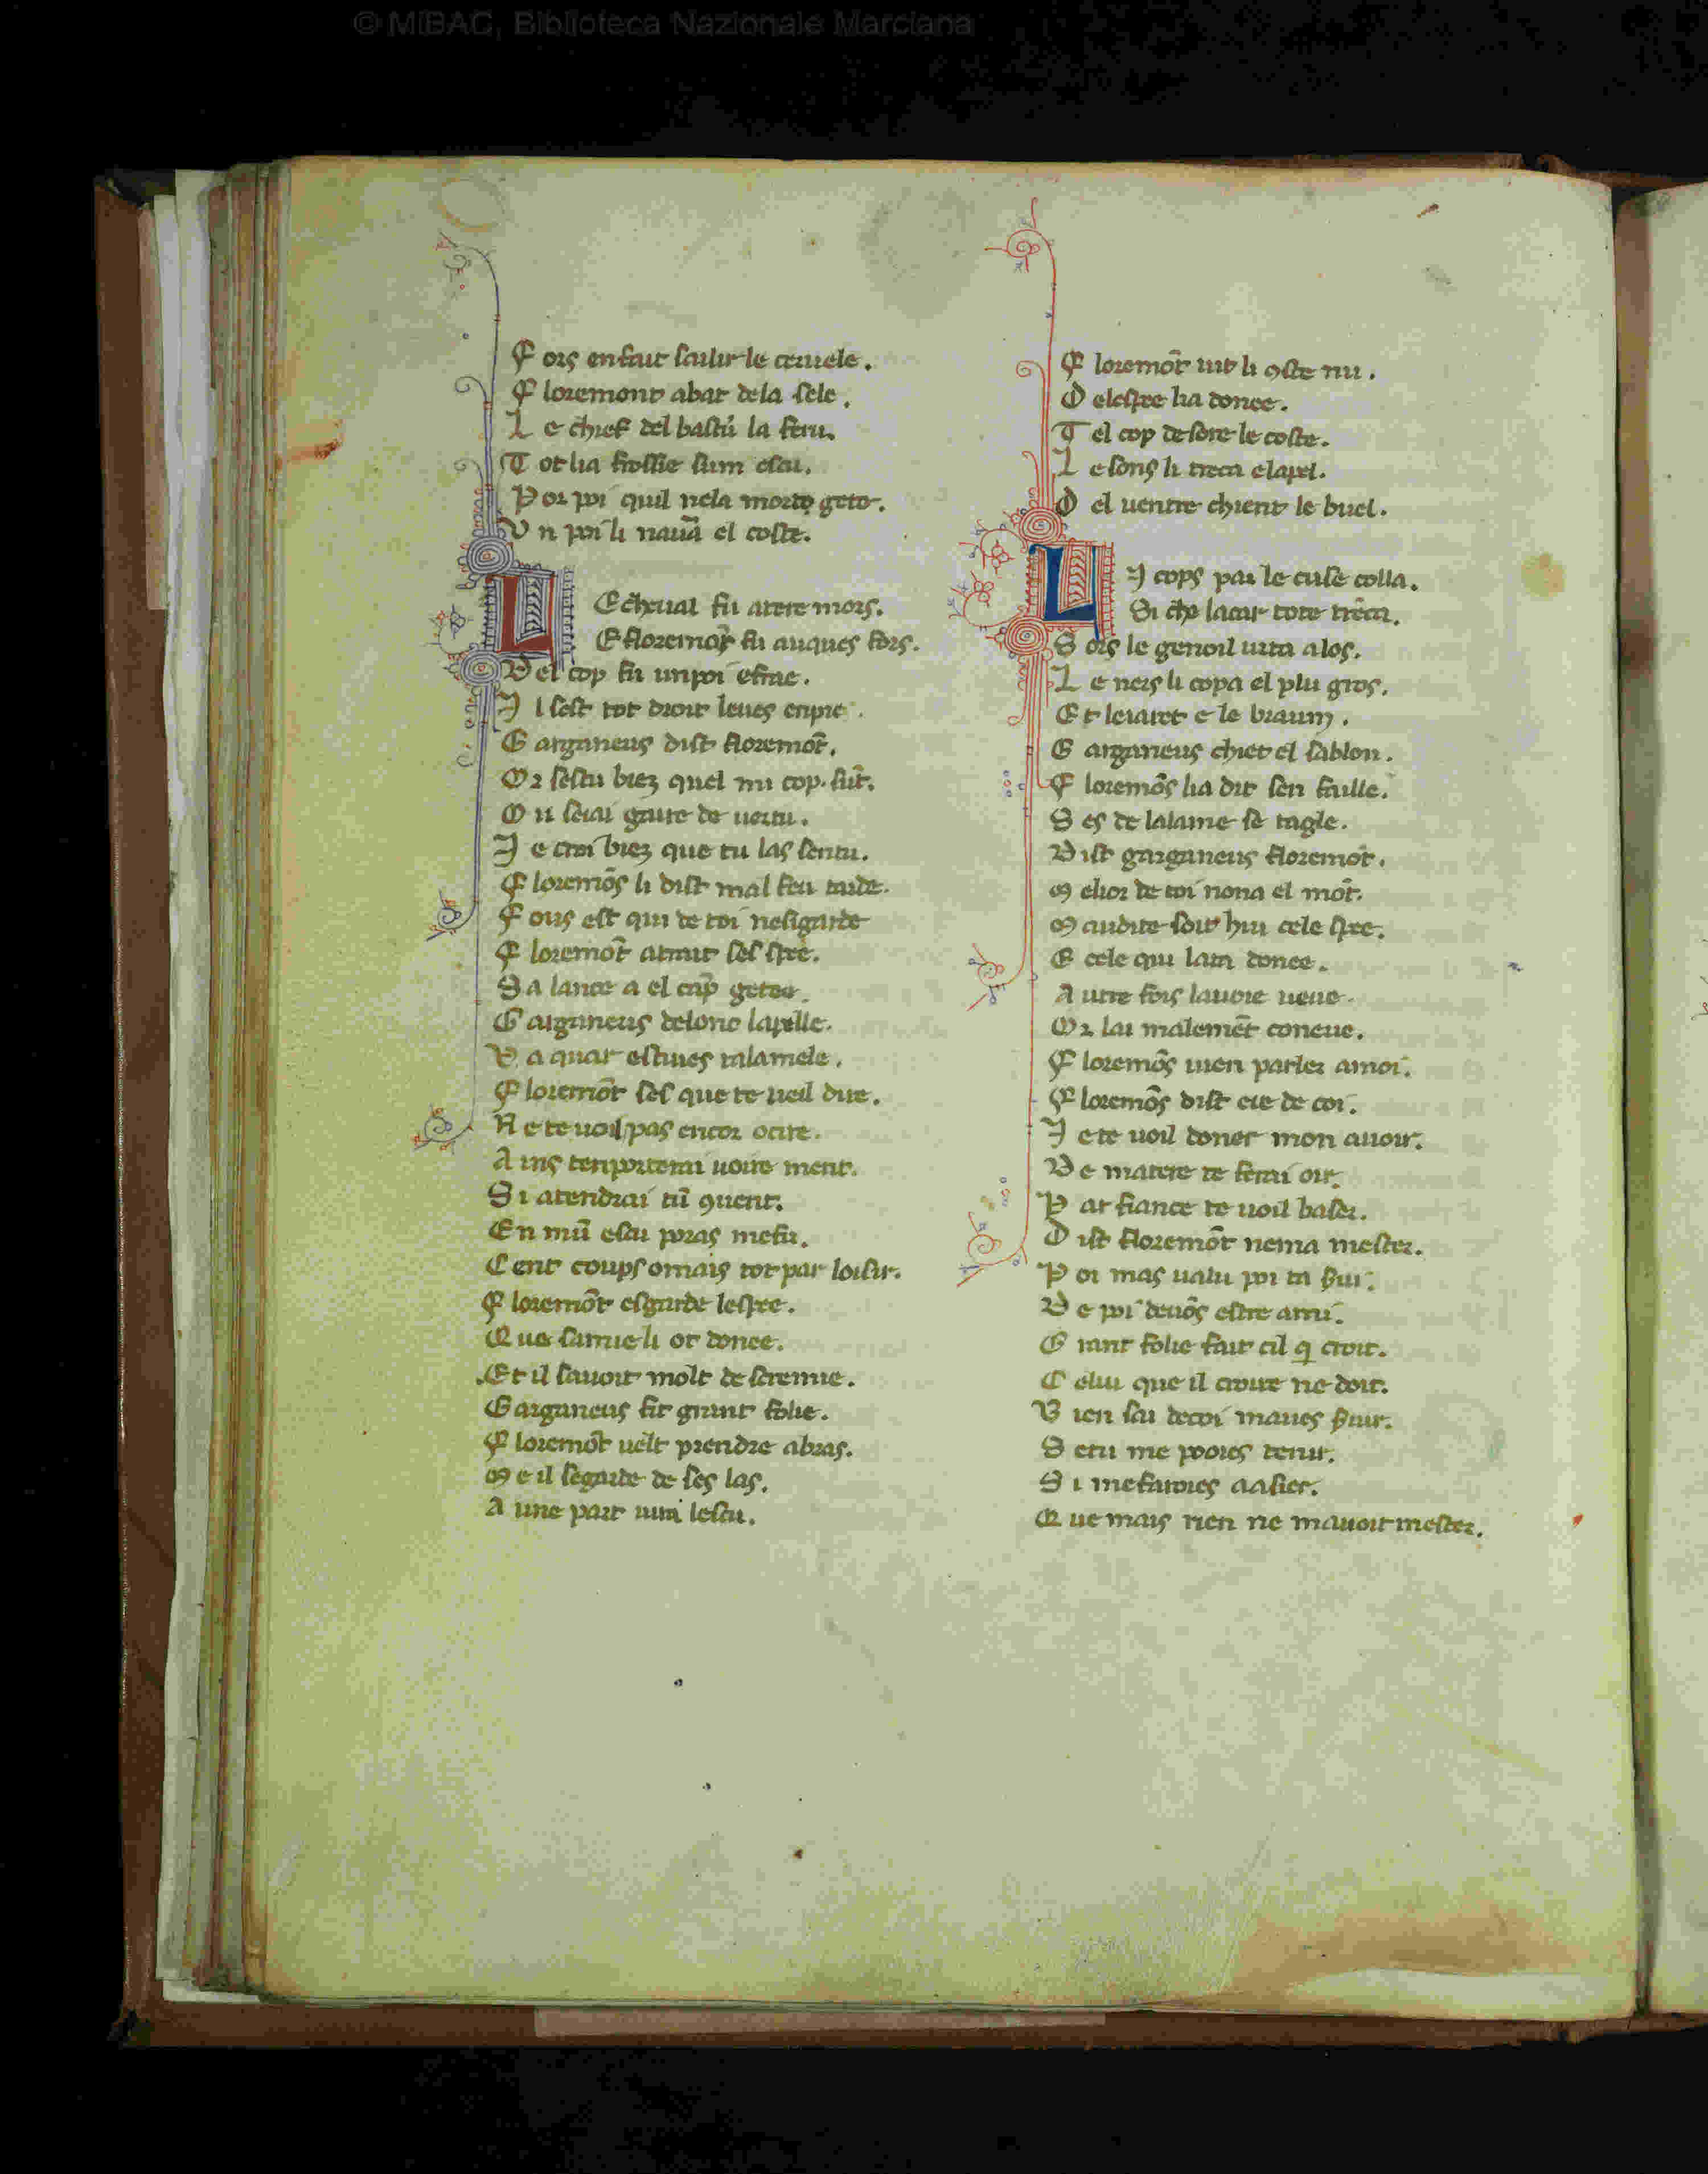 © MiBAC, Biblioteca Nazionale Marciana
F ors en fait sailir le ceruele.
F loremont abat dela sele.
L e chief del bastũ la feru.
T ot lia frossie sum escu.
P or poi quil nela morto geto.
U n poi li nauã el coste.
L E cheual fu atere mors.
E floremõs fu auques fors.
D el cop fu unpoi efrae.
I l sest tot droit leues enpie.
G arganeus dist floremõt.
O r sestu biez quel mi cop sũt.
O u seiai gaire de uertu.
I e croi biez que tu las sentu.
F loremõs li dist mal feu tarde.
F ous est qui de toi nesigarde
F loremõt atrait ses spee.
S a lance a el cãp getee.
G arganeus delonc lapelle.
V a quar estuies talamele.
F loremõt ses que te ueil dire.
N e te uoil pas encor ocire.
A ins tenporterai uoire ment.
S i atendrai tũ 9uent.
E n mũ escu poras mefu.
C ent coups omais tot par loisir.
F loremõt esgarde lespee.
Q ue samie li ot donee.
E t il sauoit molt de scremie.
G arganeus fit grant folie.
F loremõt uelt prendre abras.
M e il segarde de ses las.
A une part uira lescu.
F loremõt uit li 9ste nu.
D elespee lia donee.
T el cop desore le coste.
L e sons li treca elapel.
D el uentre chient le buel.
L I cops par le cuise colla.
Si che lacar tote trẽca.
S ors le genoil uira alos.
L e ners li copa el plu gros.
E t leiaret e le braum.
G arganeus chiet el sablon.
F loremõs lia dit sen faille.
S es de lalame se tagle.
D ist garganeus floremõt.
M elior de toi nona el mõt.
M audite soit hui cele spee.
E cele qui lata donee.
A utre fois lauoie ueue.
O r lai malemẽt coneue.
F loremõs uien parler amoi.
F loremõs dist eie de coi.
I e te uoil doner mon auoir.
D e matere te ferai oir.
P ar fiance te uoil baser.
D ist floremõt nema mester.
P oi mas ualu poi ta serui.
D e poi deuõs estre ami.
G rant folie fait cil q croit.
C elui que il croire ne doit.
B ien sai decoi maues seruir.
S etu me pooies tenir.
S i mefaroies aasier.
Q ue mais rien ne mauoit mester.